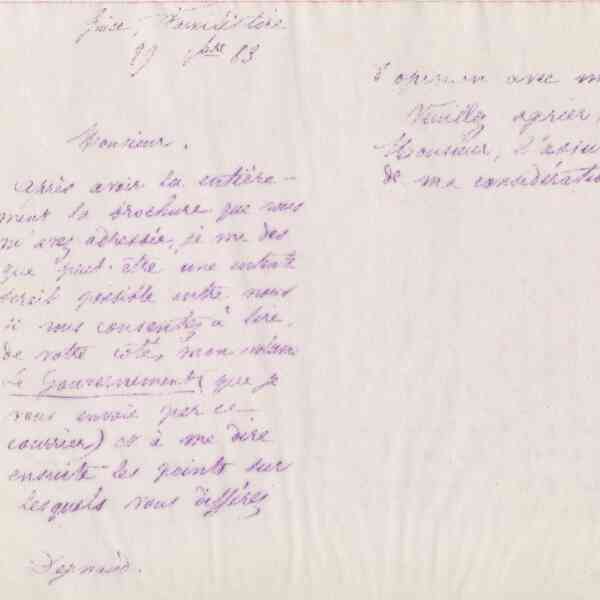 Guise, Familistère
9bre 83
Monsieur.
Après avoir lu entière-
ment la brochure que vous
m'avez adressée, je me dis
que peut-être une entente
serait possible entre nous
si vous consentez à lire,
de votre côté, mon volume
Le Gouvernement (que je
vous envoie par ce
courrier) et à me dire
ensuite les points sur
lesquels vous différez
d'opinion avec m
Veuillez agréer,
Monsieur, l'assu
de ma considératio